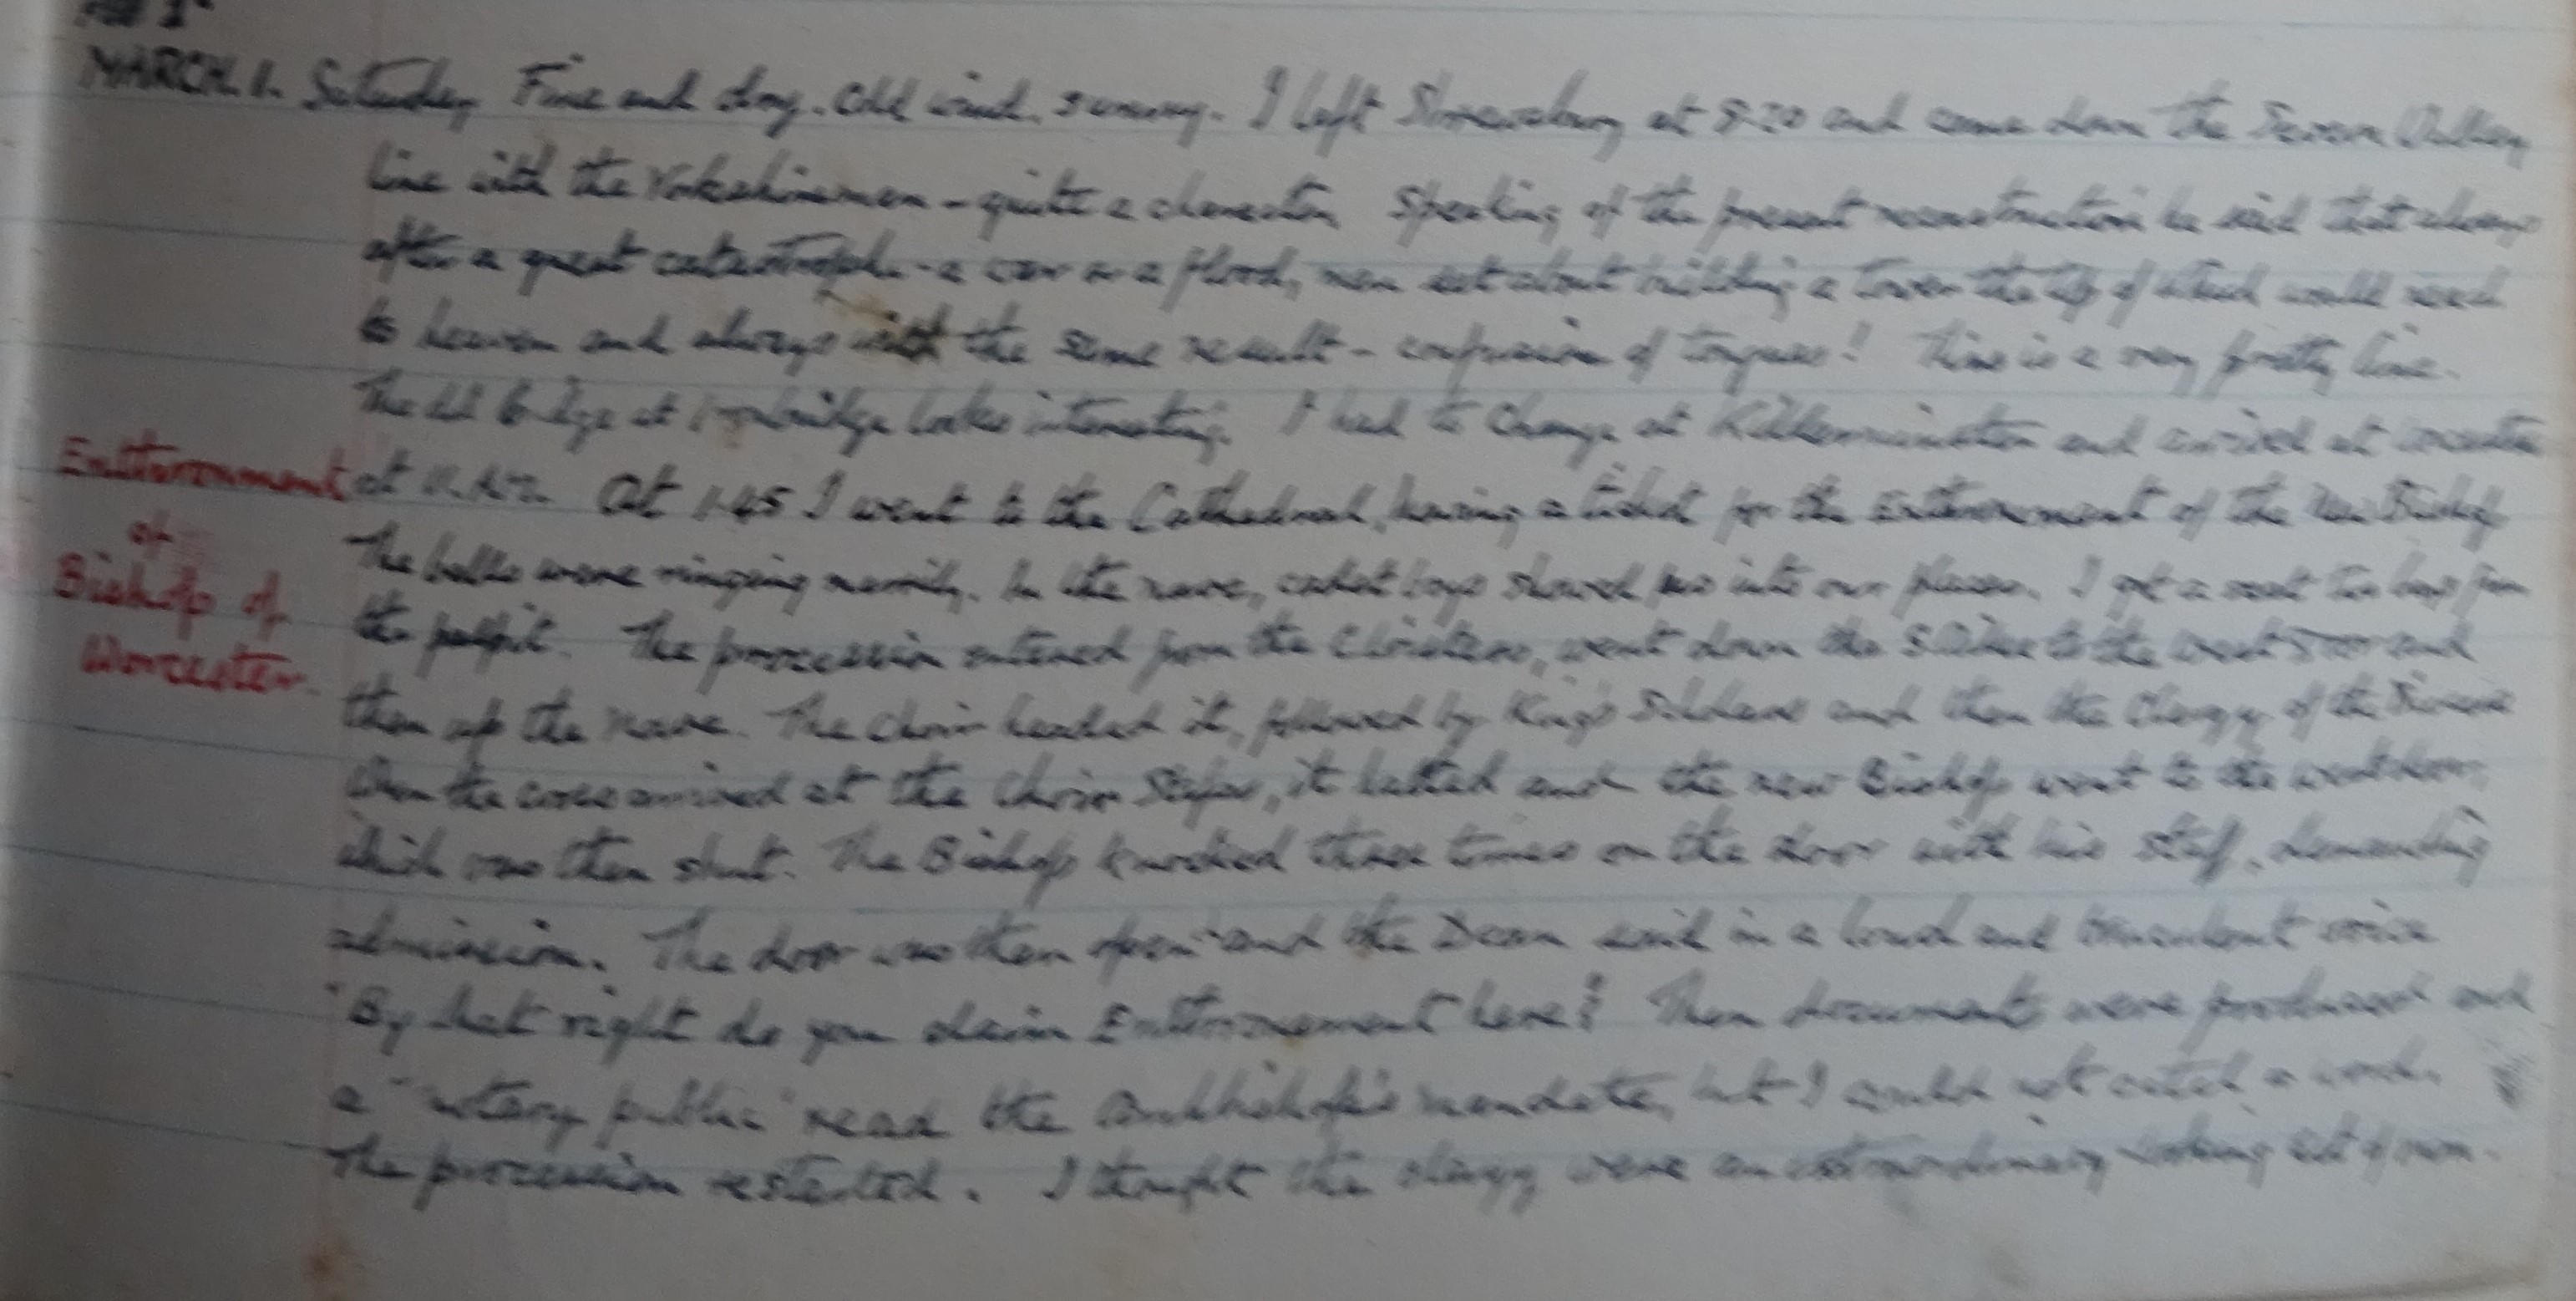 MARCH. 1. Saturday Fine and dry. Cold wind. sunny. I left Shrewsbury at 9.20 and came down the Severn Valley
line with the Yorkshireman - quite a character. Speaking of the present reconstruction he said that always
after a great catastrophe - a war or a flood, men set about building a tower the top of which would reach
to heaven and always with the same result - confusion of tongues! This is a very pretty line.
The old bridge at Ironbridge looks interesting. I had to change at Kidderminster and arrived at Worcester
Enthronment at At 1.45 I went to the Cathedral, having a ticket for the Enthronement of the New Bishop
of
Bishop of
Worcester.
The bells were ringing merrily. In the nave, cadet boys showed us into our places. I got a seat two bays from
the pulpit. The procession entered from the Cloisters, went down the S. Aisle to the West Door and
then up the Nave. The choir headed it, followed by King's Scholars and then the Clergy of the Diocese
When the cross arrived at the Choir Steps, it halted and the new Bishop went to the west door,
which was then shut. The Bishop knocked three times on the door with his staff, demanding
admission. The door was then open and the Dean said in a loud and truculent voice
"By what right do you claim Enthronement here? Then documents were produced and
a "notary public" read the Archbishop's mandate, but I could not catch a word.
The procession restarted. I thought the clergy were an extraordinary looking set of men.